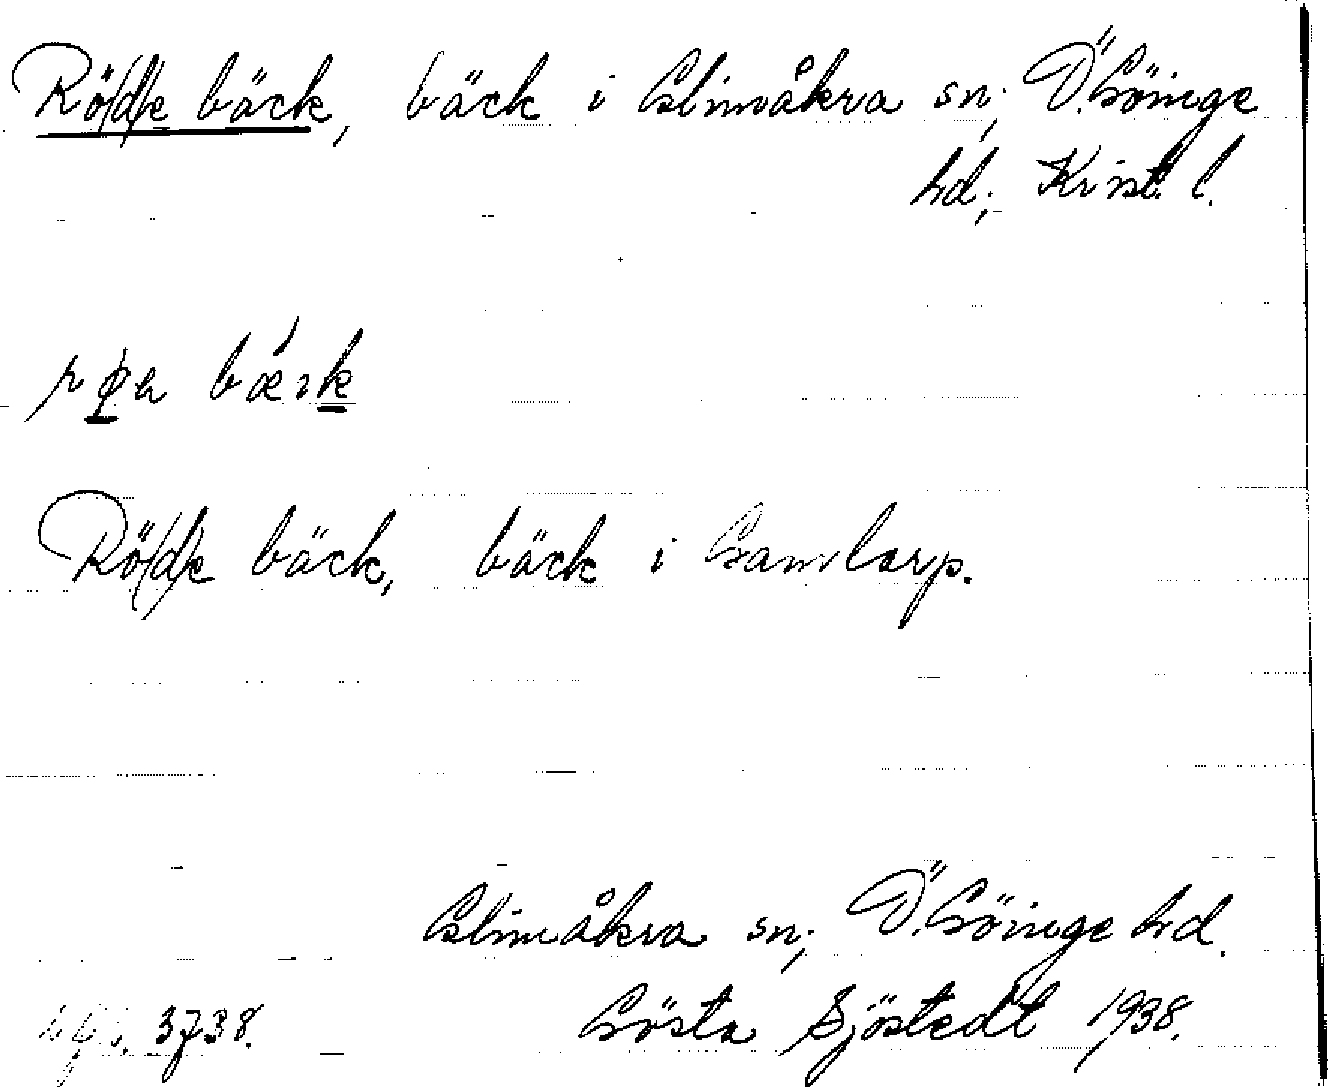 Rö(d)e bäck, bäck i Glimåkra sn; Ö. Göinge
hd; Krist. l.
bæk
Rö(d)e bäck, bäck i Gamlarp.
Glimåkra sn; Ö. Göinge hd.
3738. Gösta Sjöstedt 1938.